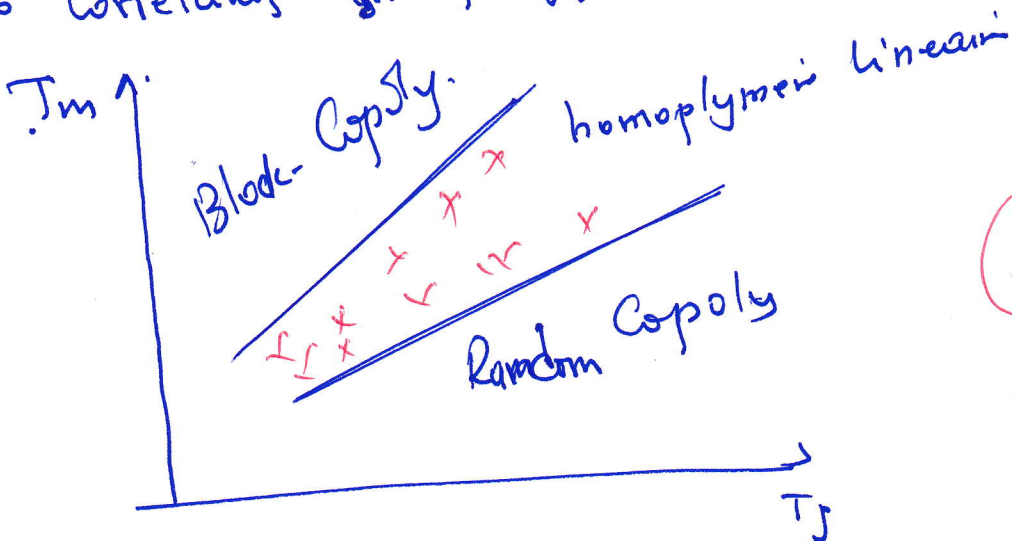 Tm
Block- Copoly.
homoplymeri lineari
Random Copoly
Tg